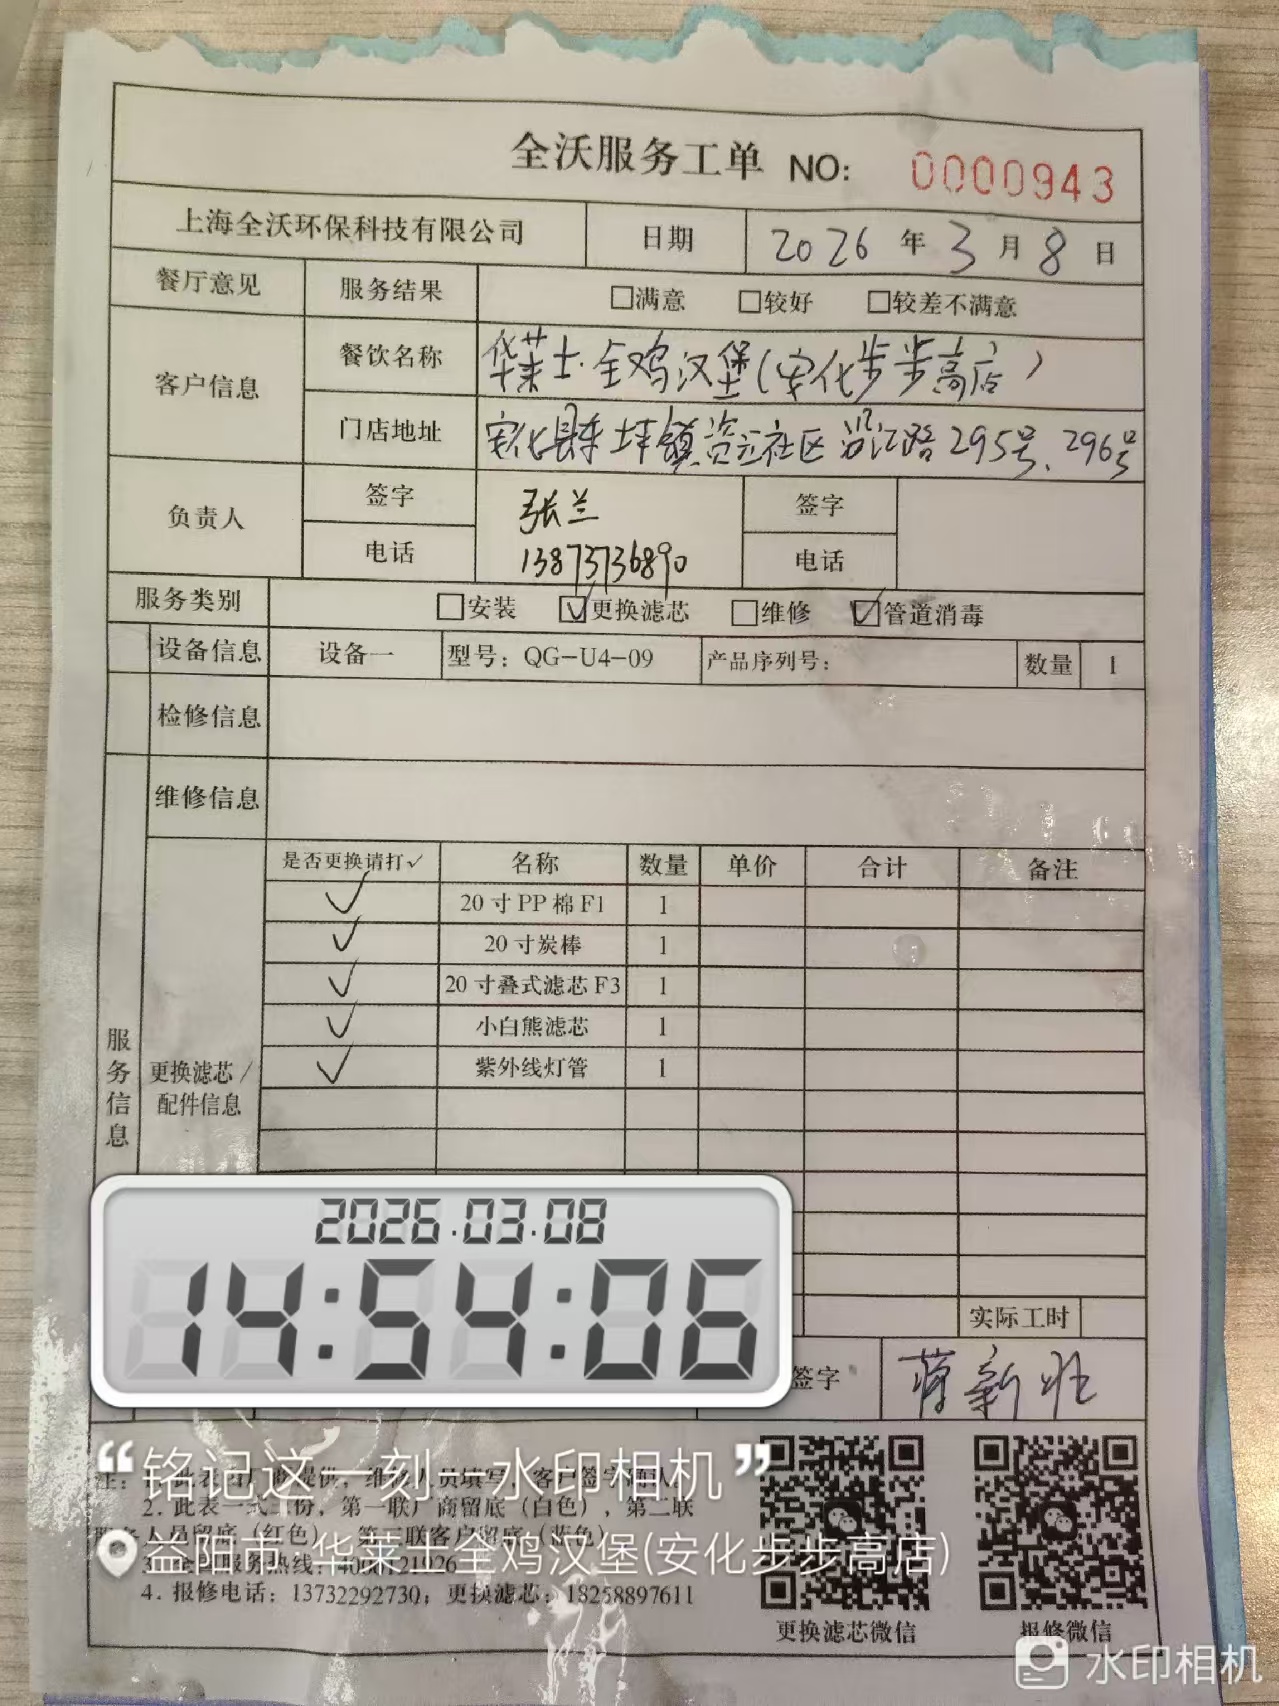 全沃服务工单 NO: 0000943
上海全沃环保科技有限公司 日期 2026年3月8日
餐厅意见 服务结果 □满意 □较好 □较差不满意
客户信息 餐饮名称 华莱士·全鸡汉堡(安化步步高店)
门店地址 安化县东坪镇资江社区沿江路295号、296号
负责人 签字 张兰 签字
电话 13873736890 电话
服务类别 □安装 ☑更换滤芯 □维修 ☑管道消毒
设备信息 设备一 型号：QG-U4-09 产品序列号： 数量 1
检修信息
维修信息
是否更换请打✓ 名称 数量 单价 合计 备注
✓ 20寸PP棉F1 1
✓ 20寸炭棒 1
✓ 20寸叠式滤芯F3 1
✓ 小白熊滤芯 1
✓ 紫外线灯管 1
服务信息
更换滤芯/
配件信息
2026.03.08
14:54:06
实际工时
签字 蒋新
“铭记这一刻—水印相机”
2. 此表一式三份，第一联厂商留底（白色），第二联
人员留底（红色），第三联客户留底（蓝色）
益阳市·华莱士全鸡汉堡(安化步步高店)
4. 报修电话：13732292730；更换滤芯：18258897611
更换滤芯微信 报修微信
水印相机